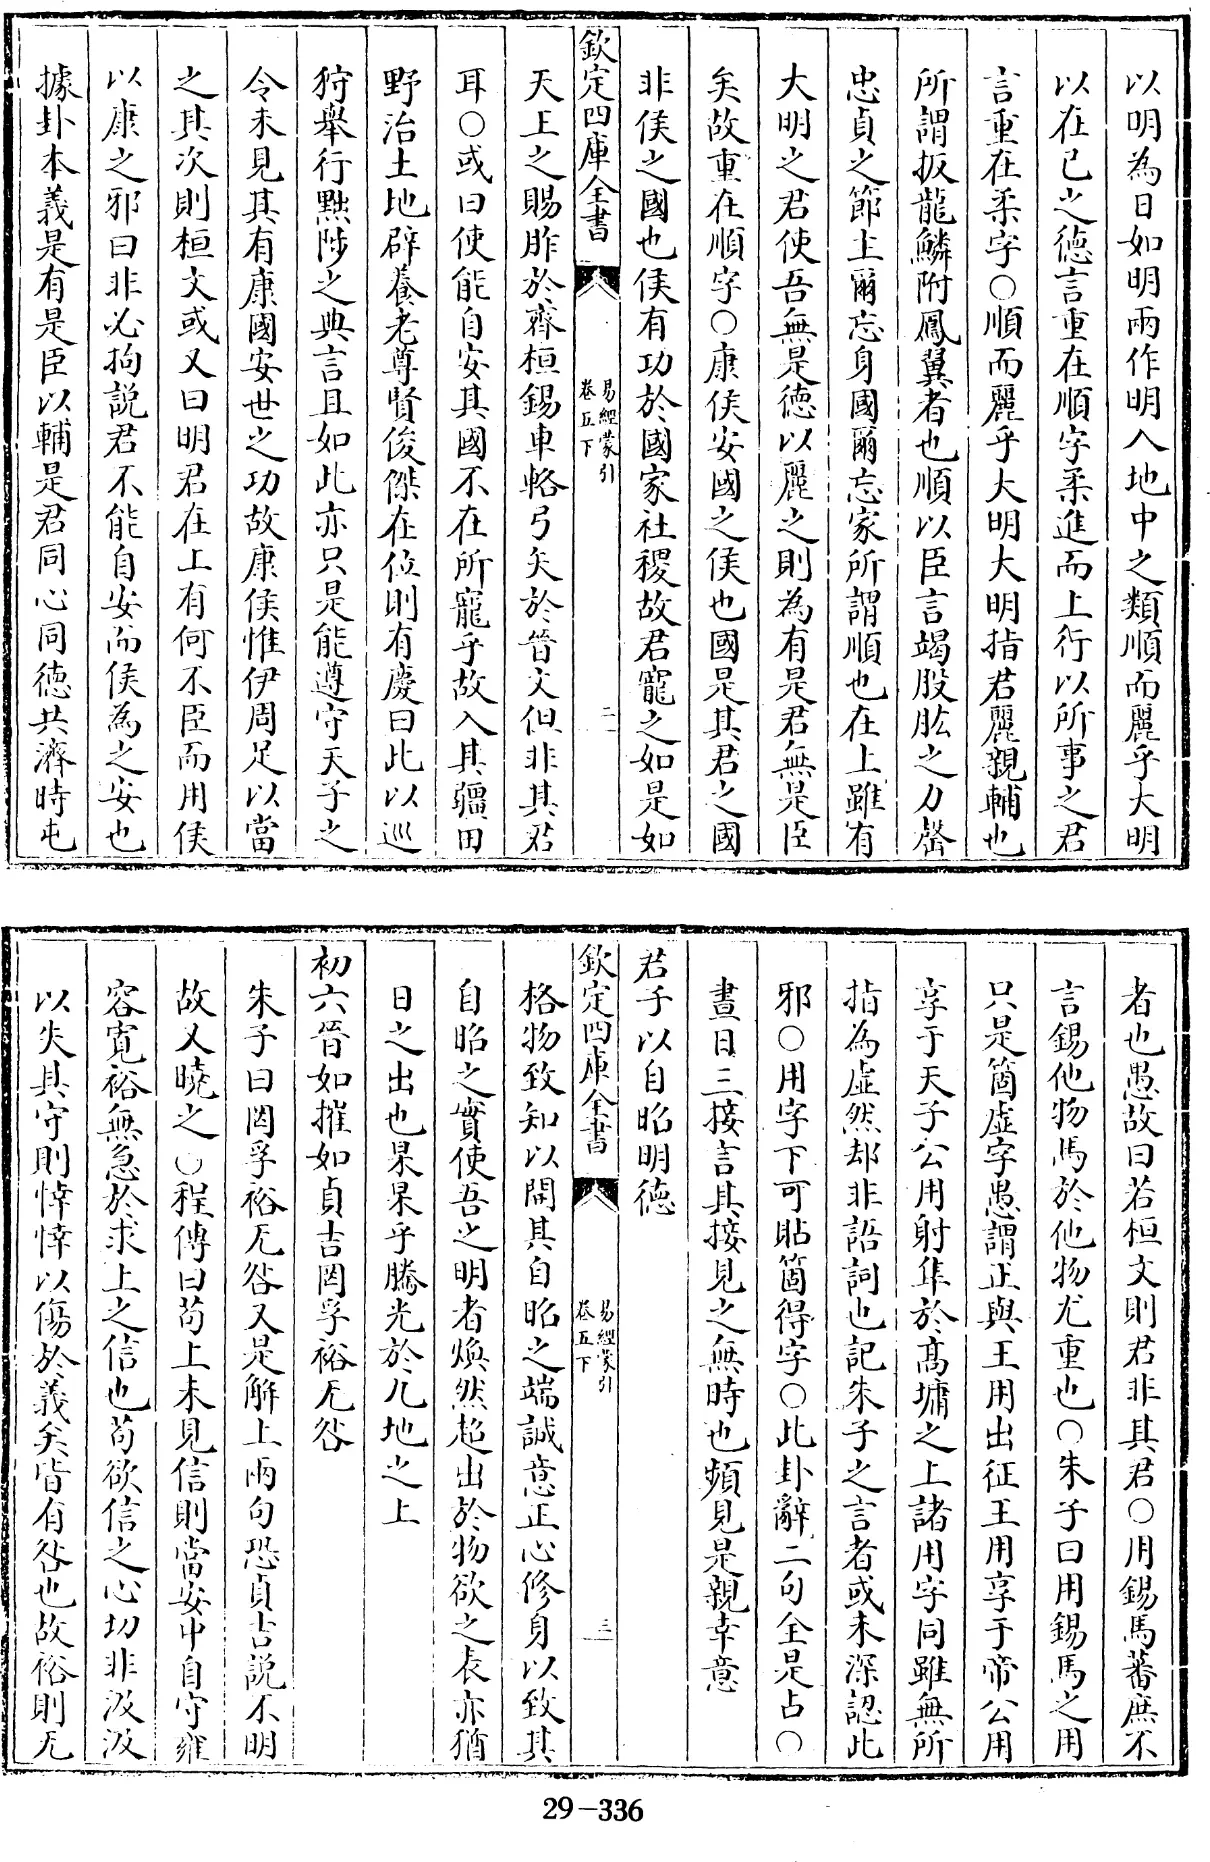 以明為日如明兩作明入地中之類順而麗乎大明
以在已之德言重在順字柔進而上行以所事之君
言重在柔字○順而麗乎大明大明指君麗親輔也
所謂扳龍鱗附鳳翼者也順以臣言竭股肱之力罄
忠貞之節上爾忘身國爾忘家所謂順也在上雖有
大明之君使吾無是德以麗之則為有是君無是臣
矣故重在順字○康侯安國之侯也國是其君之國
非侯之國也侯有功於國家社稷故君寵之如是如
欽定四庫全書
易經蒙引
卷五下
二
天王之賜胙於齊桓錫車輅弓矢於晉文但非其君
耳○或曰使能自安其國不在所寵乎故入其疆田
野治土地辟養老尊賢俊傑在位則有慶曰此以巡
狩舉行黜陟之典言且如此亦只是能遵守天子之
令未見其有康國安世之功故康侯惟伊周足以當
之其次則桓文或又曰明君在上有何不臣而用侯
以康之邪曰非必拘說君不能自安而侯為之安也
據卦本義是有是臣以輔是君同心同德共濟時屯
者也愚故曰若桓文則君非其君○用錫馬蕃庶不
言錫他物馬於他物尤重也○朱子曰用錫馬之用
只是箇虛字愚謂正與王用出征王用享于帝公用
享于天子公用射隼於髙墉之上諸用字同雖無所
指為虛然却非語詞也記朱子之言者或未深認此
邪○用字下可貼箇得字○此卦辭二句全是占○
晝日三接言其接見之無時也頻見是親幸意
君子以自昭明德
欽定四庫全書
易經蒙引
卷五下
三
格物致知以開其自昭之端誠意正心修身以致其
自昭之實使吾之明者煥然超出於物欲之表亦猶
日之出也杲杲乎騰光於九地之上
初六晉如摧如貞吉罔孚裕无咎
朱子曰罔孚裕无咎又是解上兩句恐貞吉說不明
故又曉之○程傳曰苟上未見信則當安中自守雍
容寬裕無急於求上之信也苟欲信之心切非汲汲
以失其守則悻悻以傷於義矣皆有咎也故裕則无
29-336